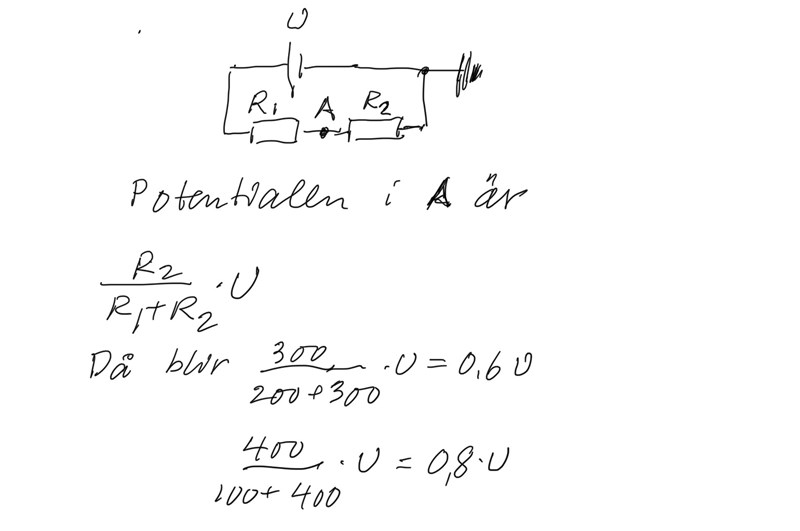 U
R₁ A R₂
Potentialen i A är
R₂
R₁+R₂ · U
Då blir 300 / 200+300 · U = 0,6 U
400 / 100+400 · U = 0,8·U